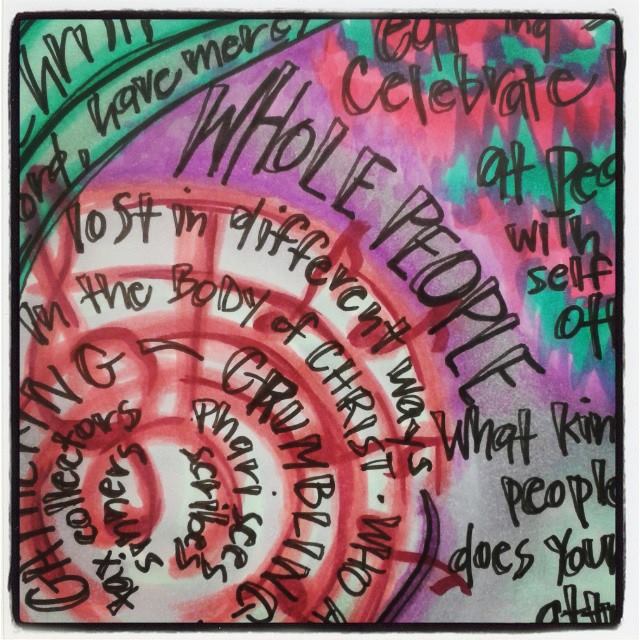 have mercy
eat
Celebrate
WHOLE PEOPLE
at
with
self
lost in different ways
in the BODY of CHRIST. WHO
GATHERING - GRUMBLING
tax collectors
sinners
Pharisees
scribes
What
people
does your